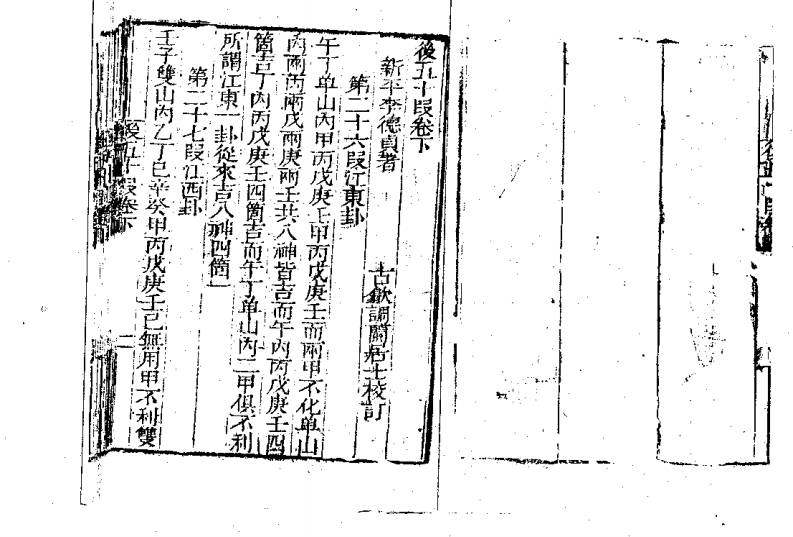 後五十段卷下
新平李德貞著
古歙調關居士校訂
第二十六段江東卦
午丁单山內甲丙戊庚壬甲丙戊庚壬而兩甲不化单山
內兩丙兩戊兩庚兩壬共八神皆吉而午內丙戊庚壬四
箇吉丁內丙戊庚壬四箇吉而午丁单山內二甲俱不利
所謂江東一卦從來吉八神四箇一
第二十七段江西卦
壬子雙山內乙丁巳辛癸甲丙戊庚壬己無用甲不利雙
後五十段卷下
二